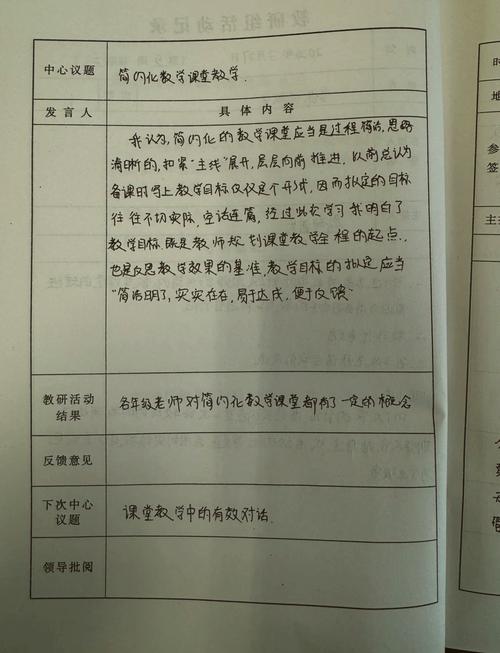 中心议题 简约化数学课堂教学.
发言人 具体内容
我认为,简约化的数学课堂应当是过程简洁,思路
清晰的,扣紧“主线”展开,层层向前推进。以前总认为
备课时写上教学目标仅仅是个形式,因而拟定的目标
往往不切实际,空话连篇,经过此次学习我明白了
教学目标既是教师规划课堂教学全程的起点.,
也是反思教学效果的基准,教学目标的拟定应当
“简洁明了,实实在在,易于达成,便于反馈”
教研活动
结果
各年级老师对简约化数学课堂都有了一定的概念
反馈意见
下次中心
议题
课堂教学中的有效对话.
领导批阅